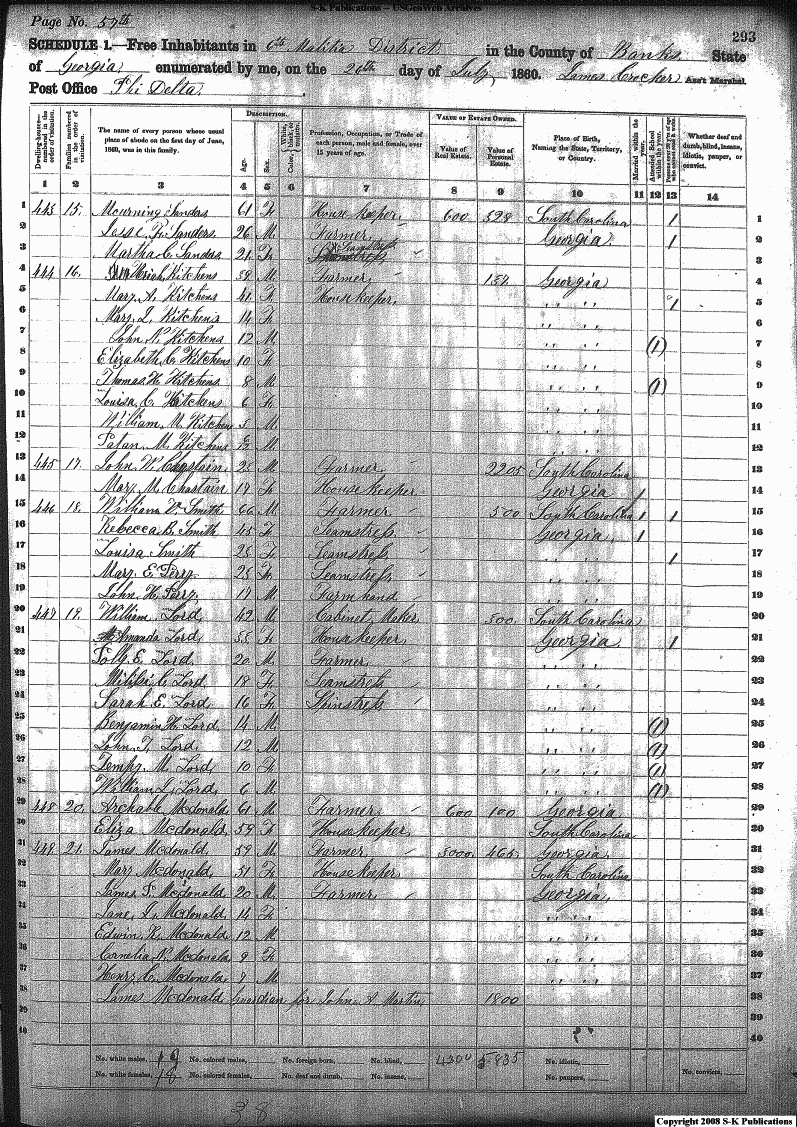 S-K Publications – USGenWeb Archives
Page No. 57th
293
SCHEDULE 1.—Free Inhabitants in 6th Malitia District in the County of Banks State
of Georgia enumerated by me, on the 20th day of July, 1860. James Crocker Ass't Marshal.
Post Office Phi Delta.
Dwelling-houses—numbered in the order of visitation.
Families numbered in the order of visitation.
The name of every person whose usual place of abode on the first day of June, 1860, was in this family.
DESCRIPTION.
Age.
Sex.
Color, White, black, or mulatto.
Profession, Occupation, or Trade of each person, male and female, over 15 years of age.
VALUE OF ESTATE OWNED.
Value of Real Estate.
Value of Personal Estate.
Place of Birth, Naming the State, Territory, or Country.
Married within the year.
Attended School within the year.
Persons over 20 y'rs of age who cannot read & write.
Whether deaf and dumb, blind, insane, idiotic, pauper, or convict.
1 2 3 4 5 6 7 8 9 10 11 12 13 14
1 445 15. Mourning Sanders 61 F. House keeper. 600 528 South Carolina 1 1
2 Sanders 26 M. Farmer Georgia 1 2
3 Martha C. Sanders 21 F. Seamstress 3
4 444 16. Kitchens 39 M. Farmer Georgia 4
5 Mary A. Kitchens 41 F. House keeper. " " 1 5
6 Mary L. Kitchens 14 F. " " 6
7 John Kitchens 12 M. " " (1) 7
8 Elizabeth C. Kitchens 10 F. " " 8
9 Thomas H. Kitchens 8 M. " " (1) 9
10 Louisa C. Kitchens 6 F. " " 10
11 William M. Kitchens M. " " 11
12 M. Kitchens M. " " 12
13 445 17. John W. Chastain M. Farmer 2205 South Carolina 13
14 Mary M. Chastain F. House keeper Georgia 1 14
15 446 18. William Smith 66 M. Farmer 500 South Carolina 1 1 15
16 Rebecca B. Smith 45 F. Seamstress Georgia 1 16
17 Louisa Smith 25 F. Seamstress " " 1 17
18 Mary E. Perry 25 F. Seamstress " " 18
19 John H. Perry M. Farm hand " " 19
20 447 19. William Lord 42 M. Cabinet Maker 500 South Carolina 20
21 Amanda Lord F. House keeper Georgia 1 21
22 E. Lord 20 M. Farmer " " 22
23 C. Lord 18 F. Seamstress " " 23
24 Sarah E. Lord 16 F. " " 24
25 Benjamin H. Lord 14 M. " " (1) 25
26 John T. Lord 12 M. " " (1) 26
27 Tempy M. Lord 10 F. " " (1) 27
28 William L. Lord 6 M. " " (1) 28
29 448 20. Archable Mcdonald 61 M. Farmer 600 100 Georgia 29
30 Eliza Mcdonald 59 F. House keeper South Carolina 30
31 448 21. James Mcdonald 59 M. Farmer 3000 465 Georgia 31
32 Mary Mcdonald 51 F. House keeper South Carolina 32
33 James Mcdonald 20 M. Farmer Georgia 33
34 Jane Mcdonald 14 F. " " 34
35 Edwin R. Mcdonald 12 M. " " 35
36 Cornelia Mcdonald 9 F. " " 36
37 Henry C. Mcdonald M. " " 37
38 James Mcdonald Guardian for John Martin 1800 38
39 39
40 40
No. white males, 19 No. colored males, No. foreign born, No. blind, 4300 5835 No. idiotic,
No. white females, 18 No. colored females, No. deaf and dumb, No. insane, No. paupers, No. convicts,
38
Copyright 2008 S-K Publications